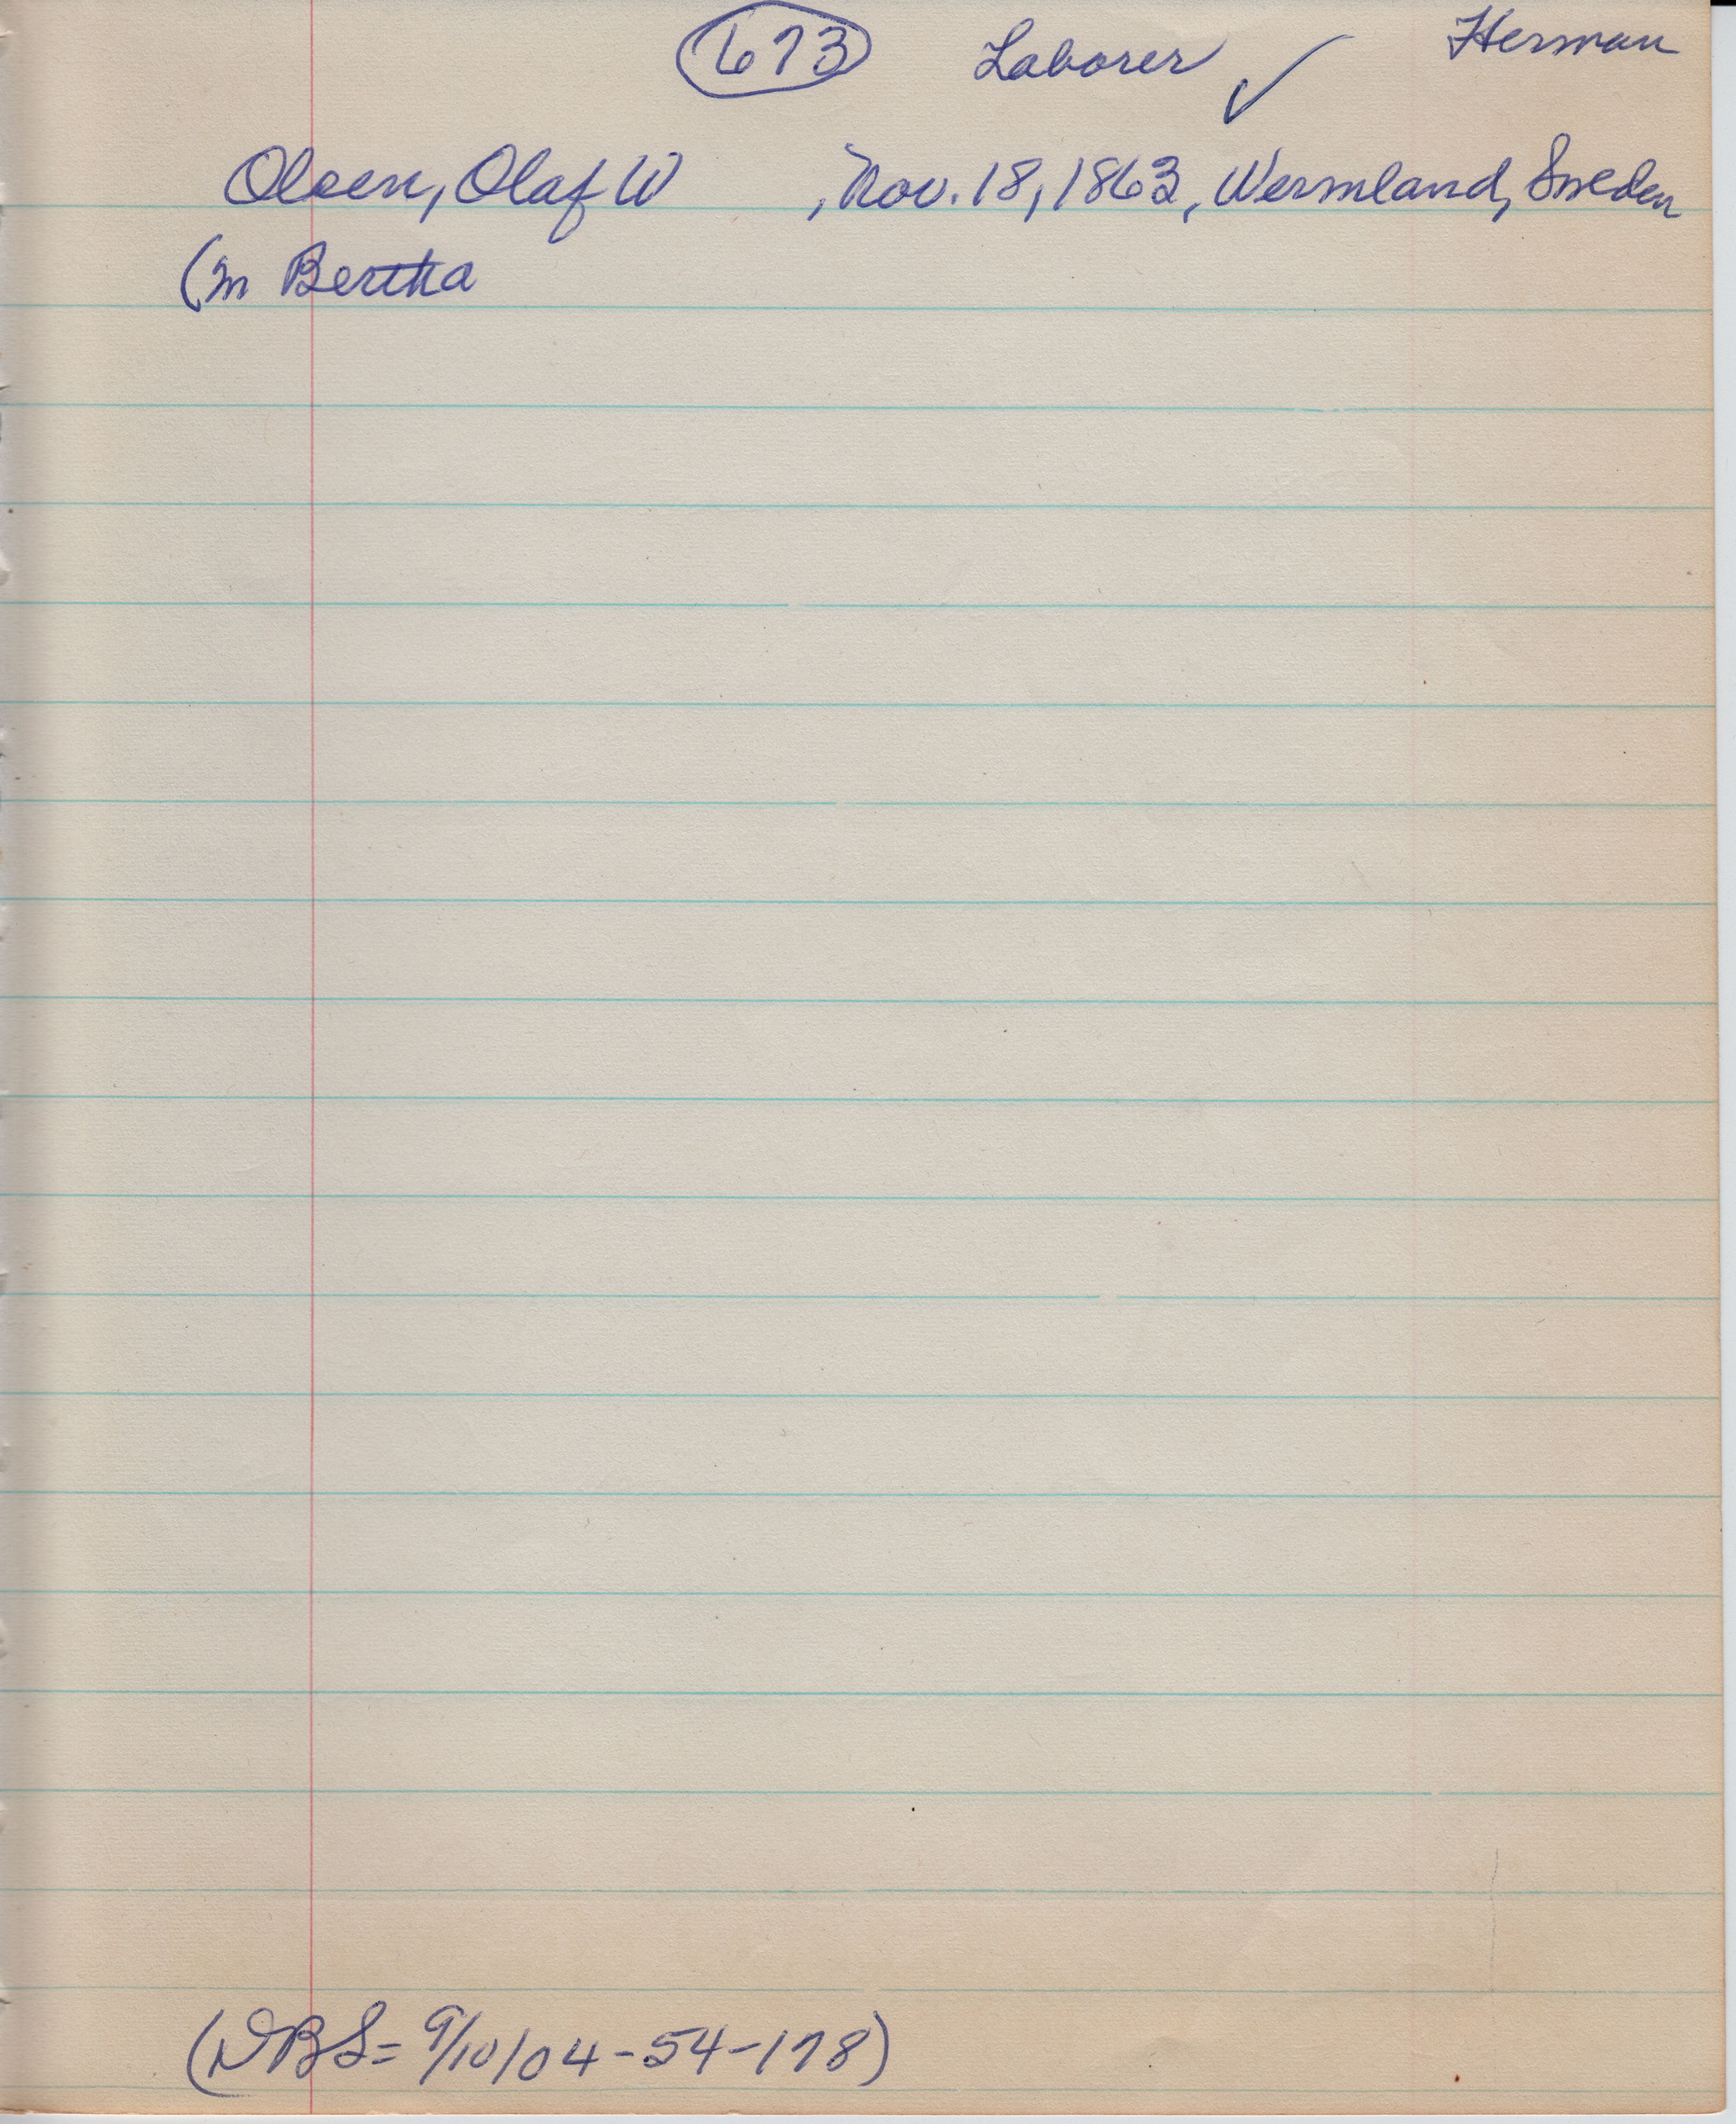 673 Laborer ✓ Herman
Olsen, Olaf W , Nov. 18, 1863, Wermland, Sweden
(m Bertha
(DBS= 9/10/04-54-178)